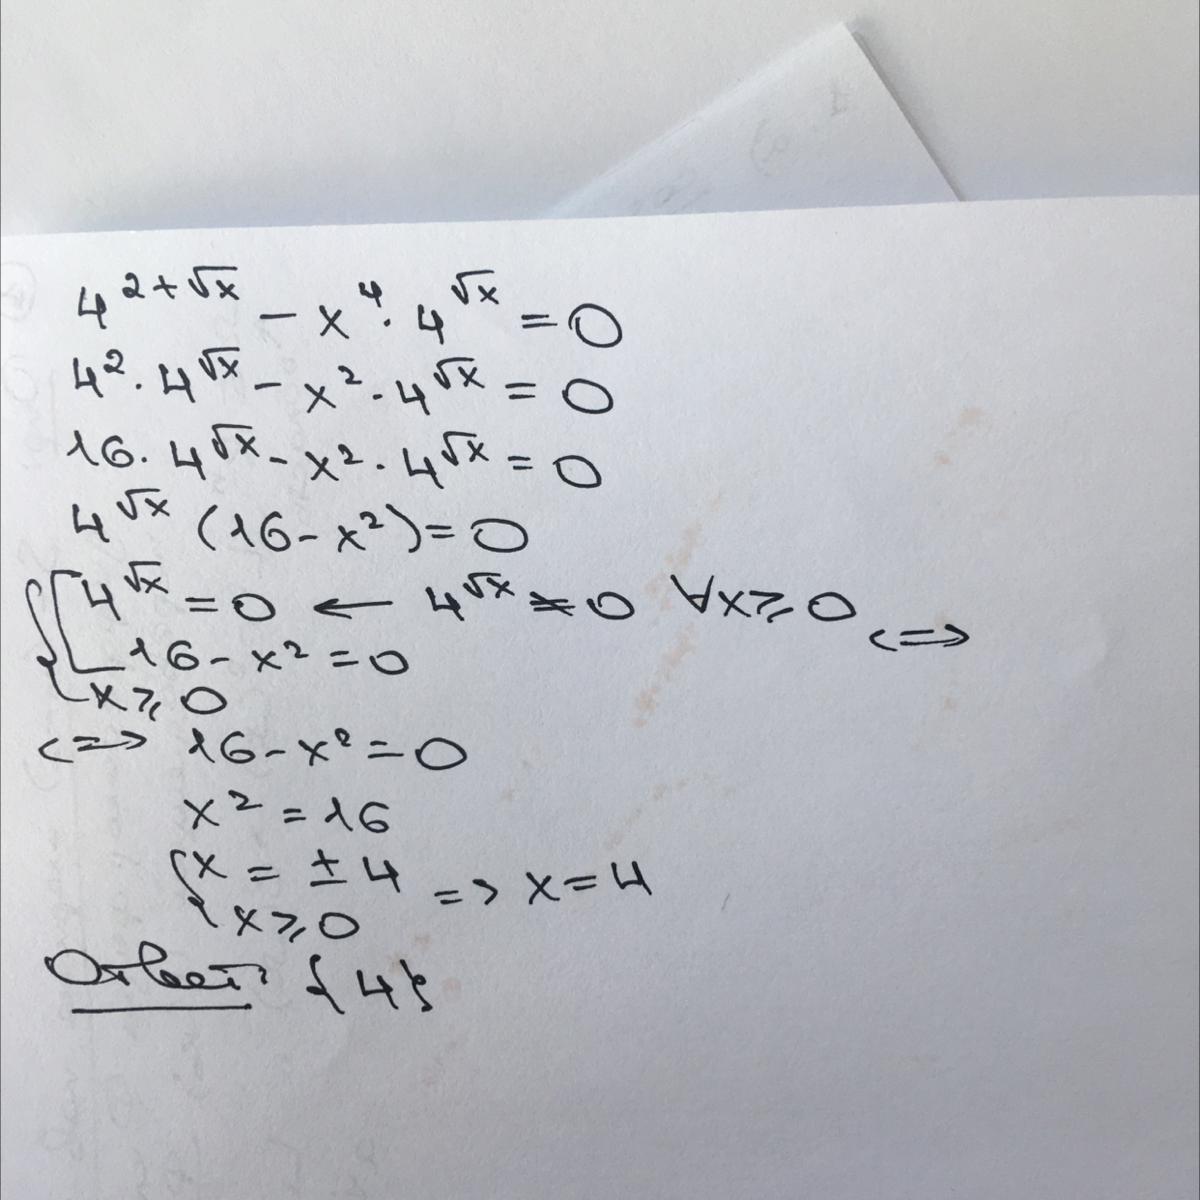 4^{2+√x} − x^4 · 4^{√x} = 0
4^2 · 4^{√x} − x^2 · 4^{√x} = 0
16 · 4^{√x} − x^2 · 4^{√x} = 0
4^{√x} (16 − x^2) = 0
{ [ 4^{√x} = 0 ← 4^{√x} ≠ 0 ∀x ⩾ 0
16 − x^2 = 0 <=>
x ⩾ 0
<=> 16 − x^2 = 0
x^2 = 16
{ x = ± 4 => x = 4
x ⩾ 0
Ответ: {4}